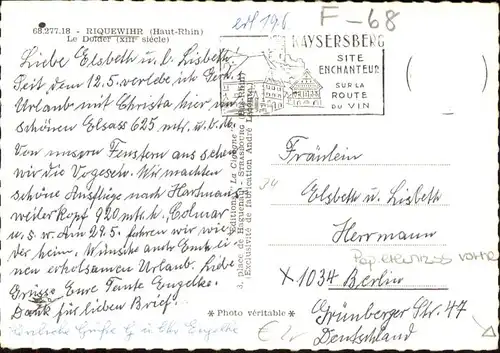 68.277.18 - RIQUEWIHR (Haut-Rhin)
Le Dolder (XIIIe siècle)
F-68
KAYSERSBERG
SITE
ENCHANTEUR
SUR LA
ROUTE
DU VIN
Liebe Elsbeth u. l. Lisbeth
Seit dem 12.5. verlebe ich
Urlaub mit Christa hier im
schönen Elsass 625 mtr. ü. d. M.
Von unsern Fenstern aus sehen
wir die Vogesen. Wir machten
schöne Ausflüge nach Hartmans
weilerkopf 920 mtr. h. Colmar
u. s. w. Am 29.5. fahren wir wie
der heim. Wünsche auch Euch ei
nen erholsamen Urlaub. Liebe
Grüsse Eure Tante Engelke.
Dank für lieben Brief.
Herzliche Grüße Engelke
Editions "La Cigogne"
3, place de Haguenau - STRASBOURG
Exclusivité de fabrication André
* Photo véritable *
Fräulein
Elsbeth u. Lisbeth
Herrmann
X 1034 Berlin
Grünberger Str. 47
Deutschland